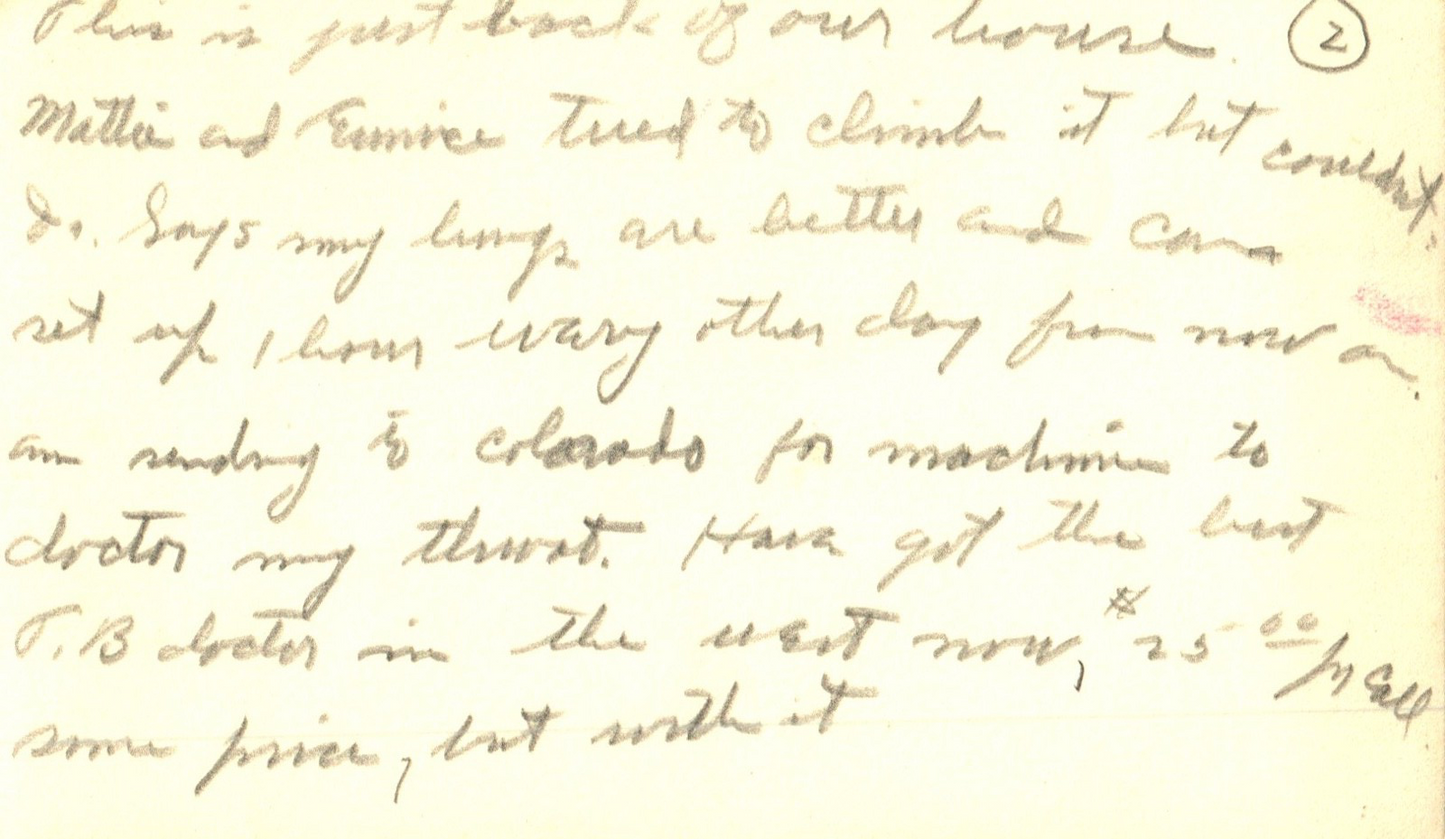 This is just back of our house. 2
Mattie and Eunice tried to climb it but couldnt.
Dr. Says my lungs are better and can
set up 1 hour evary other day from now on.
am sending to colorado for machine to
doctor my throat. Have got the best
T.B doctor in the west now, $25 00 per call
some price, but worth it